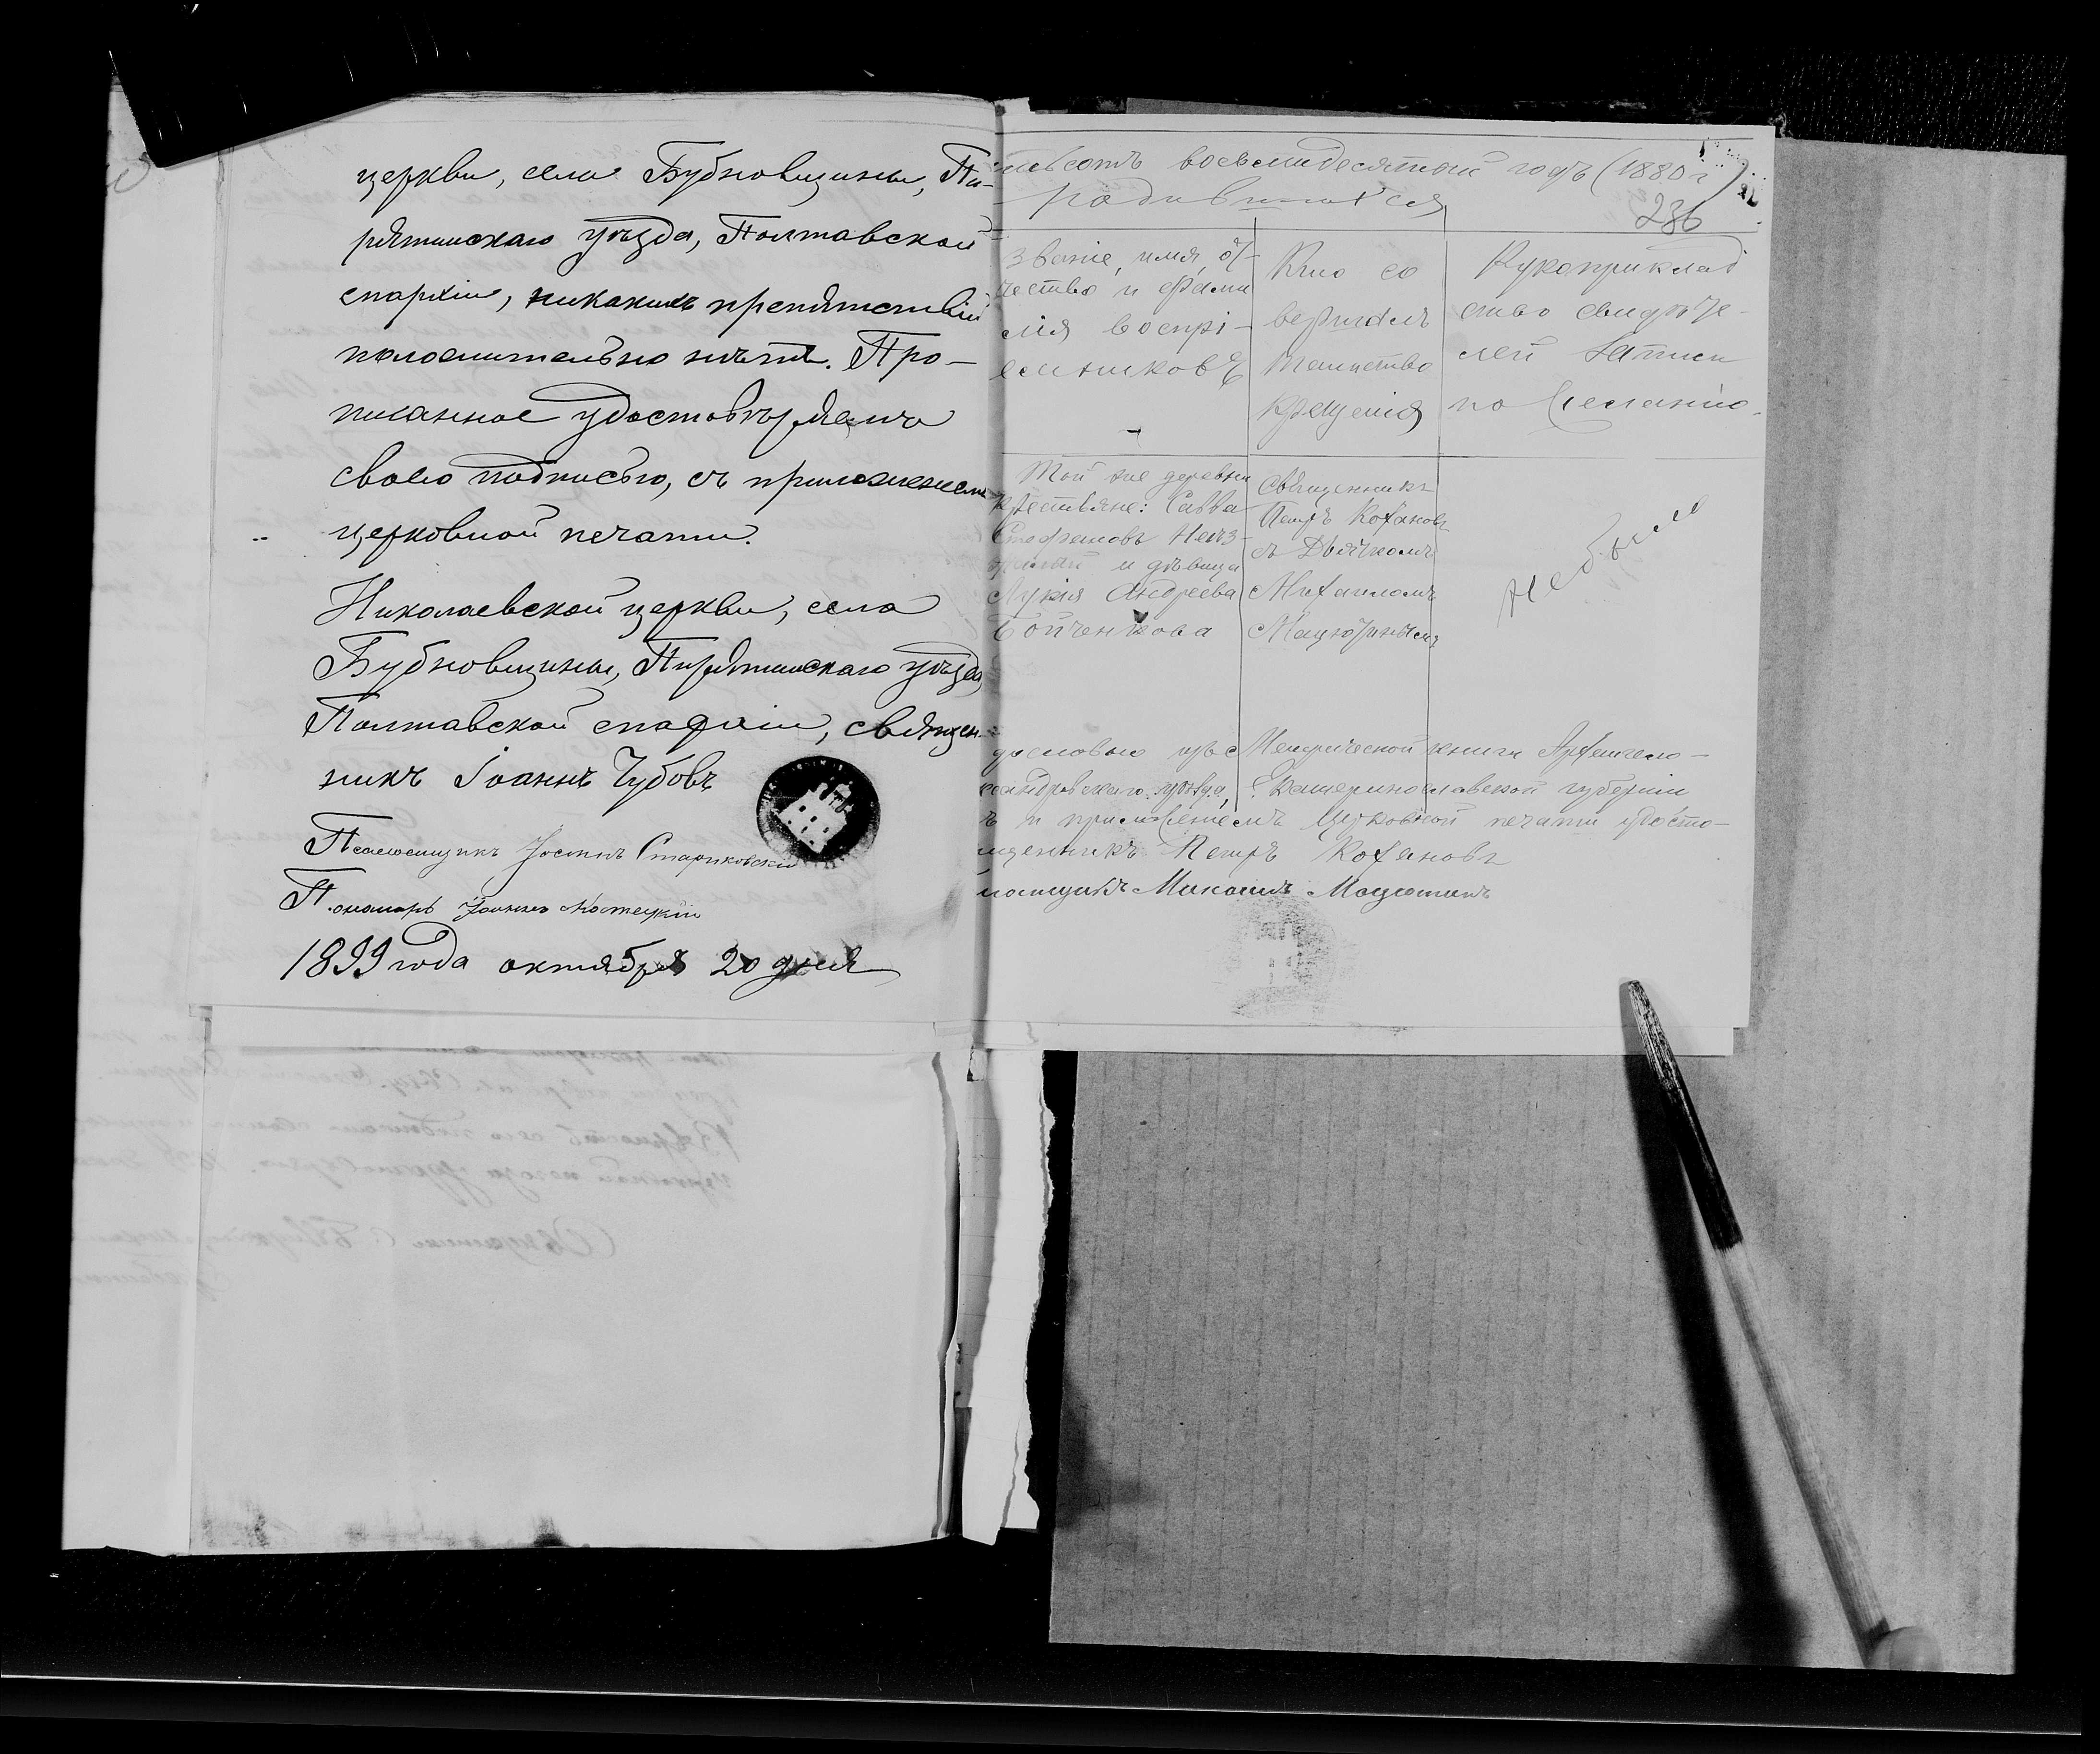 церкви, села Бубновщины, Пи-
рятинскаго уѣзда, Полтавской
епархіи, никакихъ препятствій
положительно нѣтъ. Про-
писанное удостовѣряемъ
своею подписью, съ приложеніемъ
церковной печати.
Николаевской церкви, села
Бубновщины, Пирятинскаго уѣзда,
Полтавской епархіи, священ-
никъ Іоаннъ Чубовъ
Псаломщикъ Іосифъ Стариковскій
Пономарь Іоаннъ Костецкій
1899 года октября 20 дня
восемьдесятый годъ (1880 г)
родившихся
236
званіе, имя, от-
чество и фами
лія воспрі-
емниковъ
Кто со
вершалъ
таинство
крещенія
Рукоприклад
ство свидѣте-
лей записи
по желанію.
Той же деревни
крестьяне: Савва
Стефановъ
и дѣвица
Лукія Андреева
Бойченкова
Священникъ
Петръ Кохановъ
съ Дьячкомъ
Михаиломъ
Мацютинымъ
Не было
Метрической книги
уѣзда, Екатеринославской губерніи
и приложеніемъ церковной печати удосто-
щенникъ Петръ Кохановъ
ломщикъ Михаилъ Мацютинъ